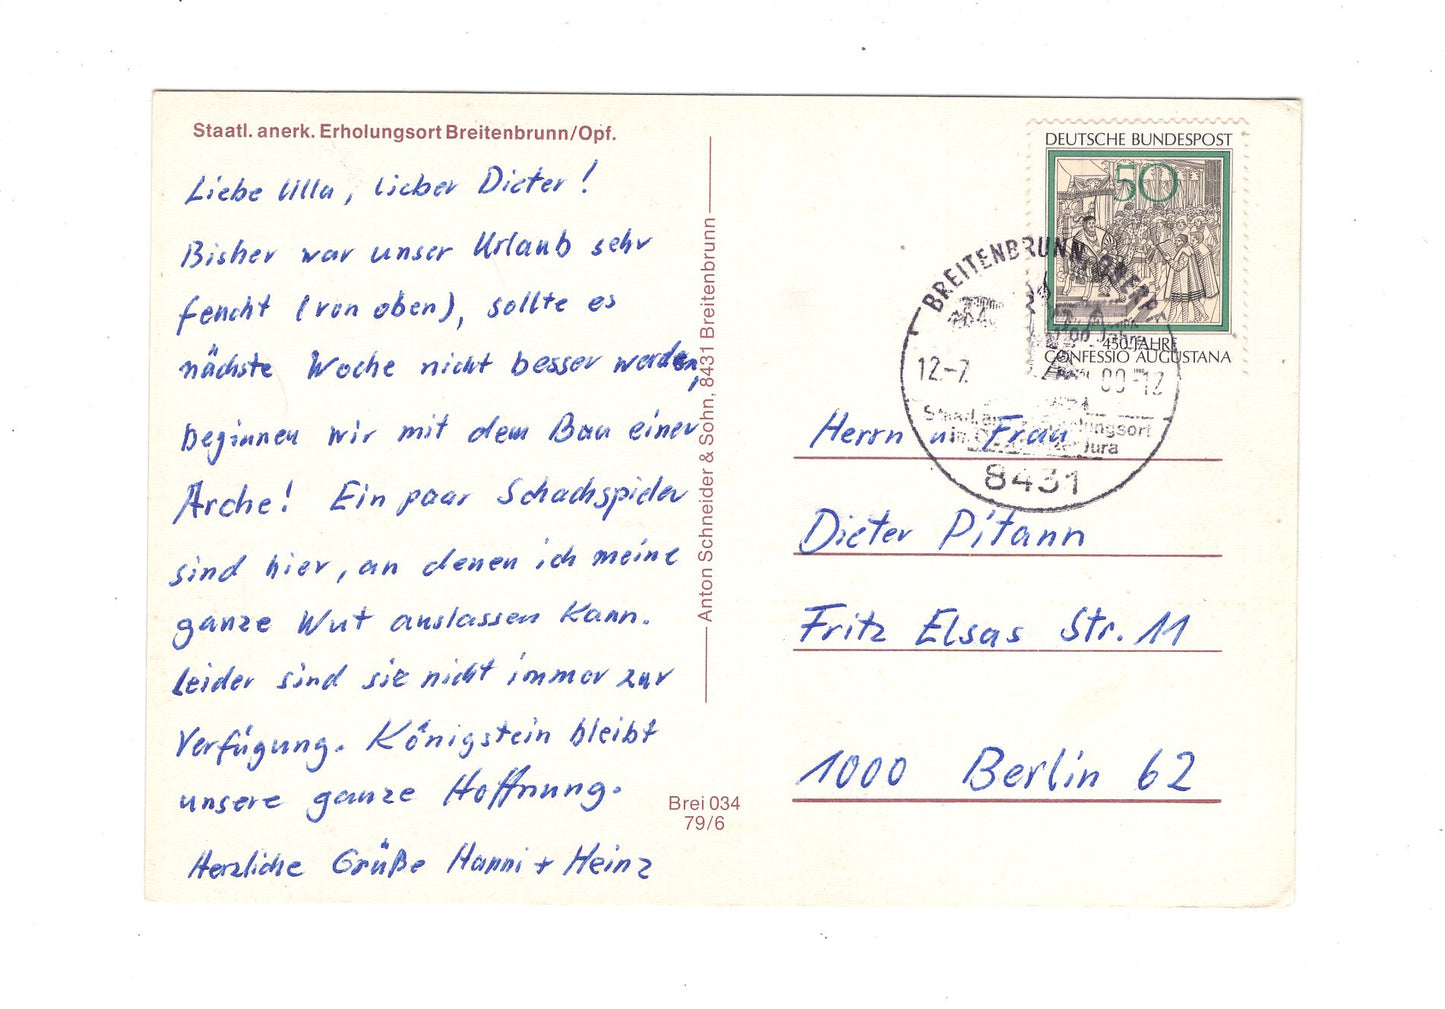 Staatl. anerk. Erholungsort Breitenbrunn/Opf.
Liebe Ulla, lieber Dieter!
Bisher war unser Urlaub sehr
feucht (von oben), sollte es
nächste Woche nicht besser werden,
beginnen wir mit dem Bau einer
Arche! Ein paar Schachspieler
sind hier, an denen ich meine
ganze Wut auslassen kann.
Leider sind sie nicht immer zur
Verfügung. Königstein bleibt
unsere ganze Hoffnung.
Herzliche Grüße Hanni + Heinz
Anton Schneider & Sohn, 8431 Breitenbrunn
Brei 034
79/6
DEUTSCHE BUNDESPOST
50
450 JAHRE
CONFESSIO AUGUSTANA
BREITENBRUNN, OBERPF
12.-7.
-12
Jura
8431
Herrn u. Frau
Dieter Pitann
Fritz Elsas Str. 11
1000 Berlin 62